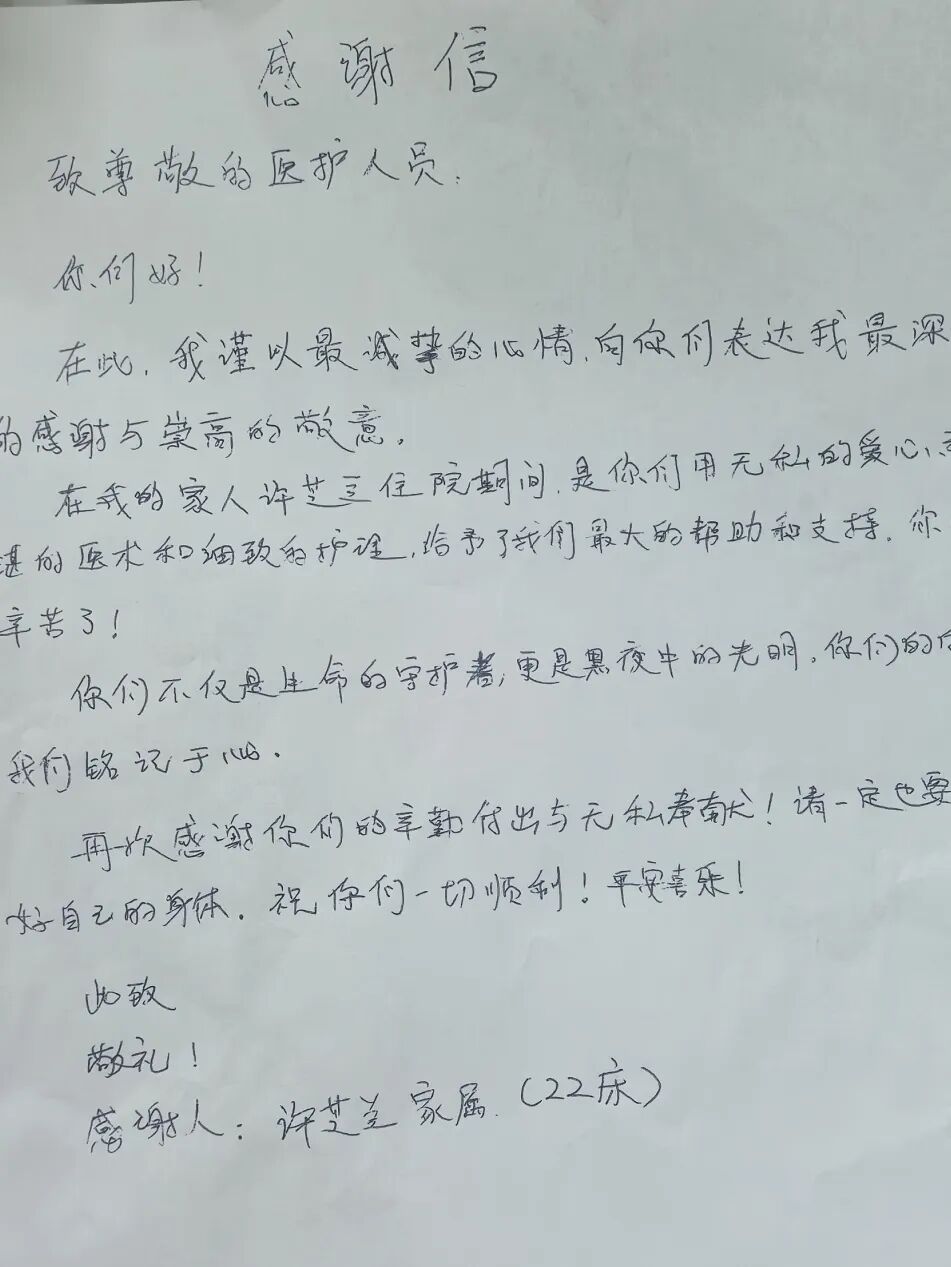 感谢信
致尊敬的医护人员:
你们好!
在此,我谨以最诚挚的心情,向你们表达我最深
的感谢与崇高的敬意。
在我的家人许芝兰住院期间,是你们用无私的爱心、
湛的医术和细致的护理,给予了我们最大的帮助和支持。你
辛苦了!
你们不仅是生命的守护者,更是黑夜中的光明。你们的
我们铭记于心。
再次感谢你们的辛勤付出与无私奉献!请一定也要
好自己的身体。祝你们一切顺利!平安喜乐!
此致
敬礼!
感谢人:许芝兰家属.(22床)